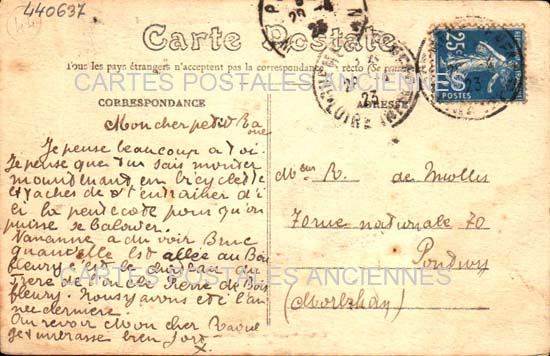 440637
Carte Postale
Tous les pays étrangers n'acceptent pas la correspondance au recto (Se renseigner
CARTES POSTALES ANCIENNES
CORRESPONDANCE
ADRESSE
25c
POSTES
23
LOIRE
Mon cher petit Ra
oul
Je pense beaucoup a toi
Je pense que tu sais monter
maintenant en bicyclette
et taches de t'entrainer d'i
ci la pentecote pour qu'on
puisse se balader.
Nananne a du voir
quand elle est allée au Bois
fleury c'est le chateau du
frere de l'oncle Pierre de Bois
fleury. Nous y avons été l'an
née derniere.
Au revoir Mon cher Raoul
je t'embrasse bien fort
Mr R. de Miollis
70 rue nationale 70
Pontivy
(Morbihan)
CARTES POSTALES ANCIENNES